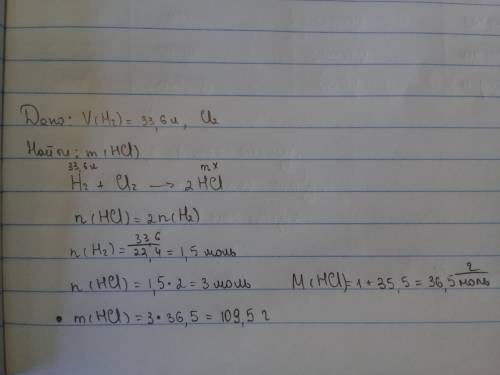 Дано: V(H₂) = 33,6 л, Cl₂
Найти: m(HCl)
33,6 л mx
H₂ + Cl₂ → 2HCl
n(HCl) = 2n(H₂)
n(H₂) = 33,6/22,4 = 1,5 моль
n(HCl) = 1,5 · 2 = 3 моль M(HCl) = 1 + 35,5 = 36,5 г/моль
• m(HCl) = 3 · 36,5 = 109,5 г